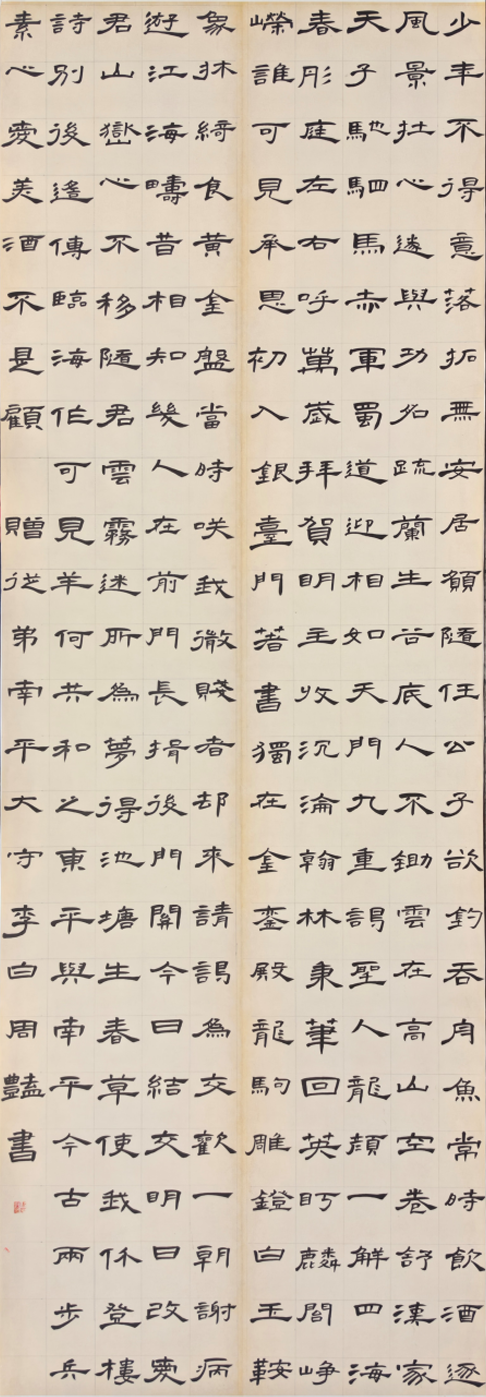 少年不得意落拓無安居願隨任公子欲釣吞舟魚常時飲酒逐
風景壮心遂與功名疏蘭生谷底人不鋤雲在高山空卷舒漢家
天子馳駟馬赤軍蜀道迎相如天門九重謁聖人龍顏一解四海
春彤庭左右呼萬歲拜賀明主收沉淪翰林秉筆回英眄麟閣崢
嶸誰可見承恩初入銀臺門著書獨在金鑾殿龍駒雕鐙白玉鞍
象牀綺食黃金盤當時咲我微賤者却來請謁為交歡一朝謝病
遊江海疇昔相知幾人在前門長揖後門關今日結交明日改愛
君山嶽心不移隨君雲霧迷所為夢得池塘生春草使我休登樓
詩別後遙傳臨海作可見羊何共和之東平與南平今古兩步兵
素心愛美酒不是顧 贈從弟南平大守李白周豔書